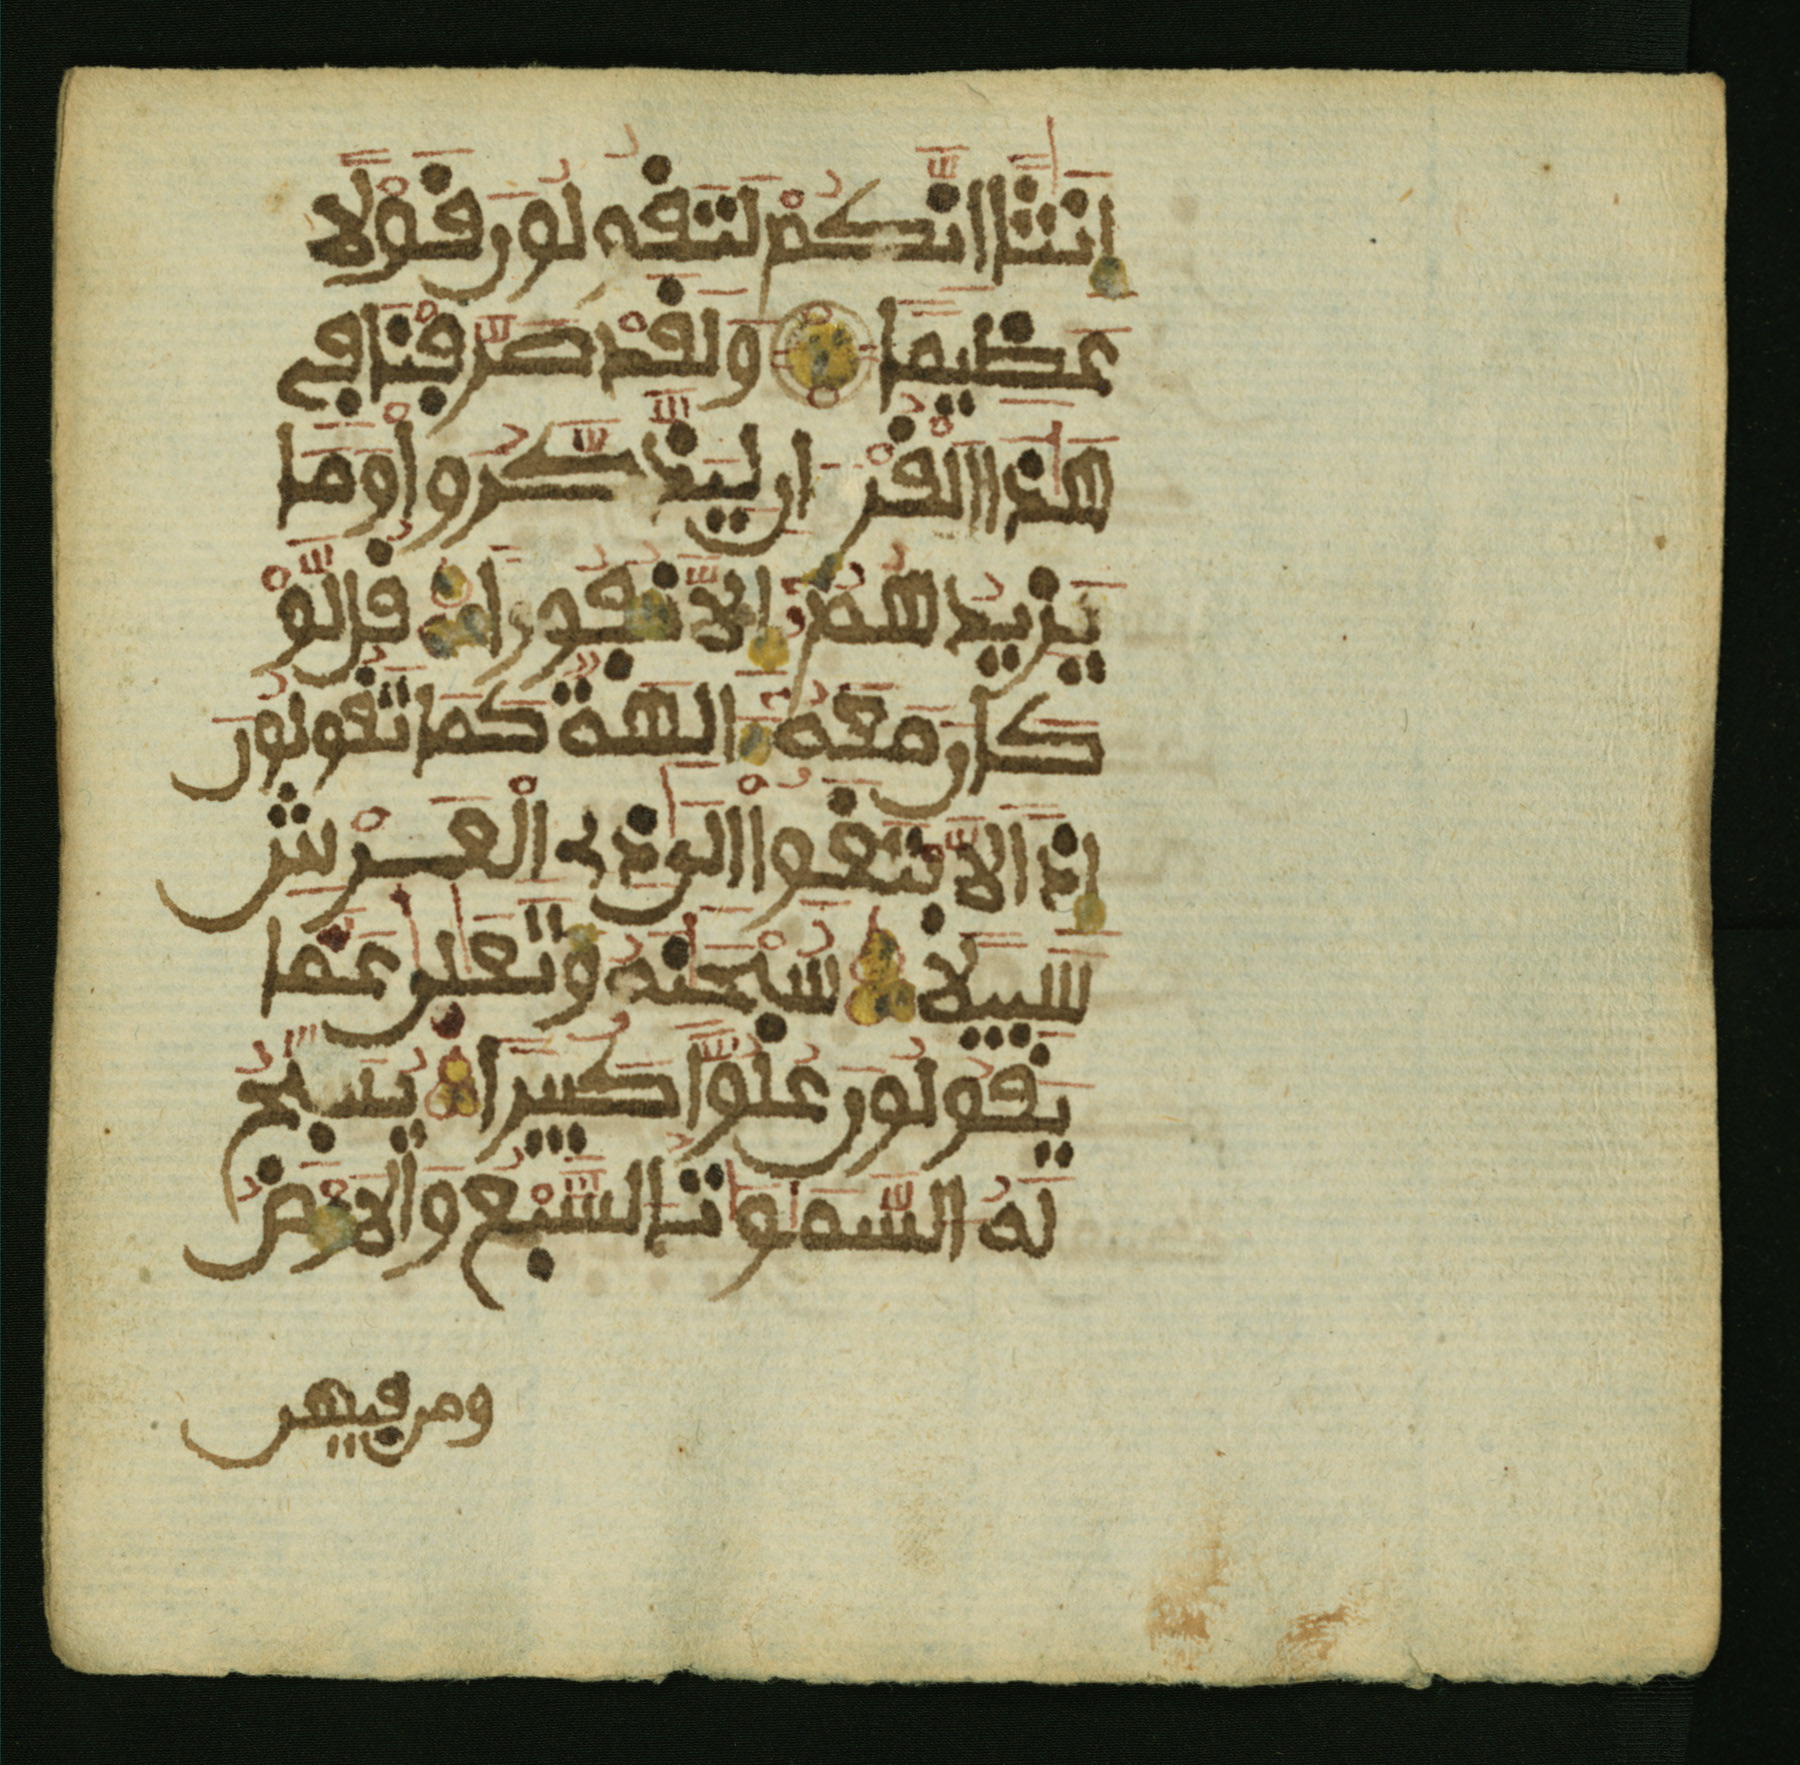 اِنَٰثًا اِنَّكُمْ لَتَقُولُونَ قَوْلًا
عَظِيمًا وَلَقَدْ صَرَّفْنَا فِے
هَٰذَا اَ۬لْقُرْءَانِ لِيَذَّكَّرُواْ وَمَا
يَزِيدُهُمُۥٓ إِلَّا نُفُورًا قُل لَّوْ
كَانَ مَعَهُۥٓ ءَالِهَةٌ كَمَا تَقُولُونَ
إِذًا لَّابْتَغَوِاْ اِلَىٰ ذِے اِ۬لْعَرْشِ
سَبِيلًا سُبْحَٰنَهُۥ وَتَعَٰلَىٰ عَمَّا
يَقُولُونَ عُلُوًّا كَبِيرًا يُسَبِّحُ
لَهُ السَّمَٰوَٰتُ السَّبْعُ وَالَارْضُ
ومن فيهن